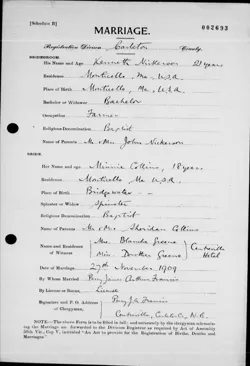 [Schedule B]
002693
MARRIAGE.
Registration Division Carleton County.
BRIDEGROOM.
His Name and Age Kenneth Nickerson 21 years
Residence Monticello, Me, U.S.A.
Place of Birth Monticello, Me, U.S.A.
Bachelor or Widower Bachelor
Occupation Farmer
Religious Denomination Baptist
Name of Parents Mr. & Mrs. John Nickerson
BRIDE.
Her Name and age Minnie Collins, 18 years
Residence Monticello, Me U.S.A.
Place of Birth Bridgewater
Spinster or Widow Spinster
Religious Denomination Baptist
Name of Parents Mr & Mrs. Sheridan Collins
Name and Residence of Witness Mrs. Blanche Greene
Miss. Greene Centreville Hotel
Date of Marriage 27th November 1909
By Whom Married Francis
By License or Banns License
Signature and P. O. Address of Clergyman, Francis
Centreville, Carleton Co., N.B.
NOTE—The above Form is to be filled in full, and accurately by the clergyman solemnizing
the Marriage and forwarded to the Division Registrar as required by Act of Assembly
50th Vic., Cap V, intituled "An Act to provide for the Registration of Births, Deaths and
Marriages."